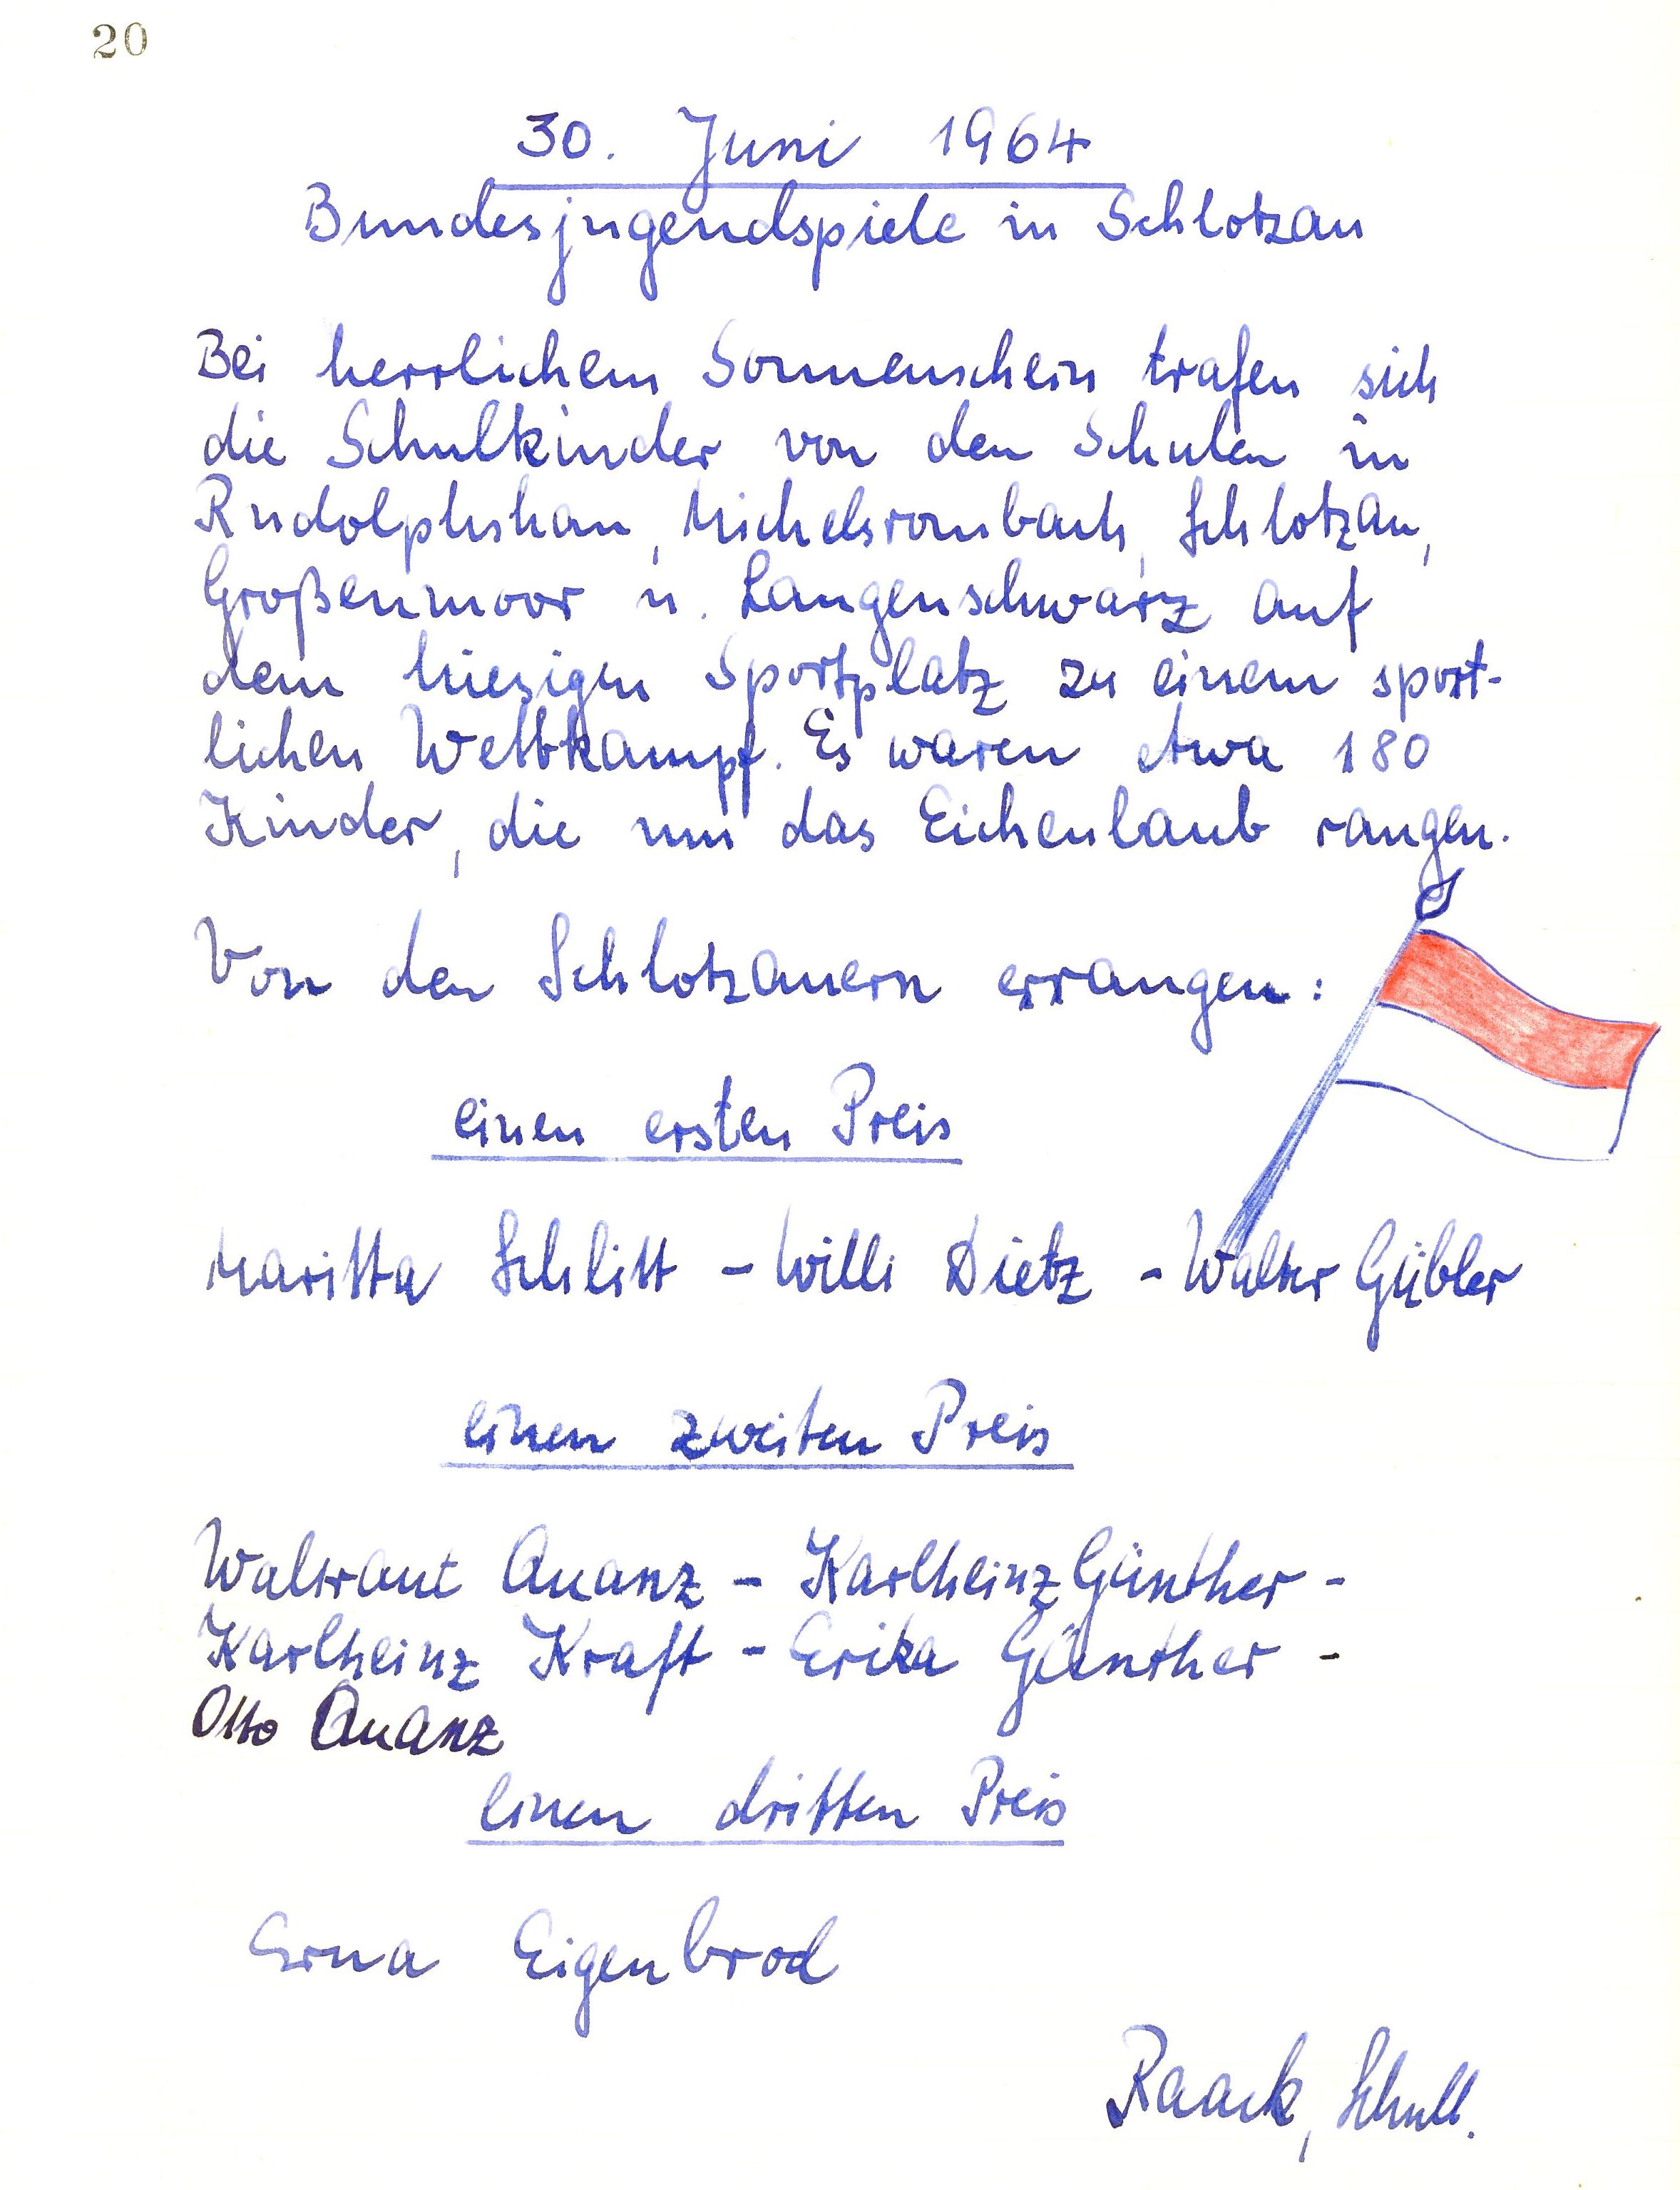 20
30. Juni 1964
Bundesjugendspiele in Schlotzau
Bei herrlichem Sonnenschein trafen sich
die Schulkinder von den Schulen in
Rudolphshan, Michelsrombach, Schlotzau,
Großenmoor u. Langenschwarz auf
dem hiesigen Sportplatz zu einem sport-
lichen Wettkampf. Es waren etwa 180
Kinder, die um das Eichenlaub rangen.
Von den Schlotzauern errangen:
einen ersten Preis
Maritta Schlitt - Willi Dietz - Walter Gübler
einen zweiten Preis
Waltraut Quanz - Karlheinz Günther -
Karlheinz Kraft - Erika Günther -
Otto Quanz
einen dritten Preis
Erna Eigenbrod
Raack, Schull.